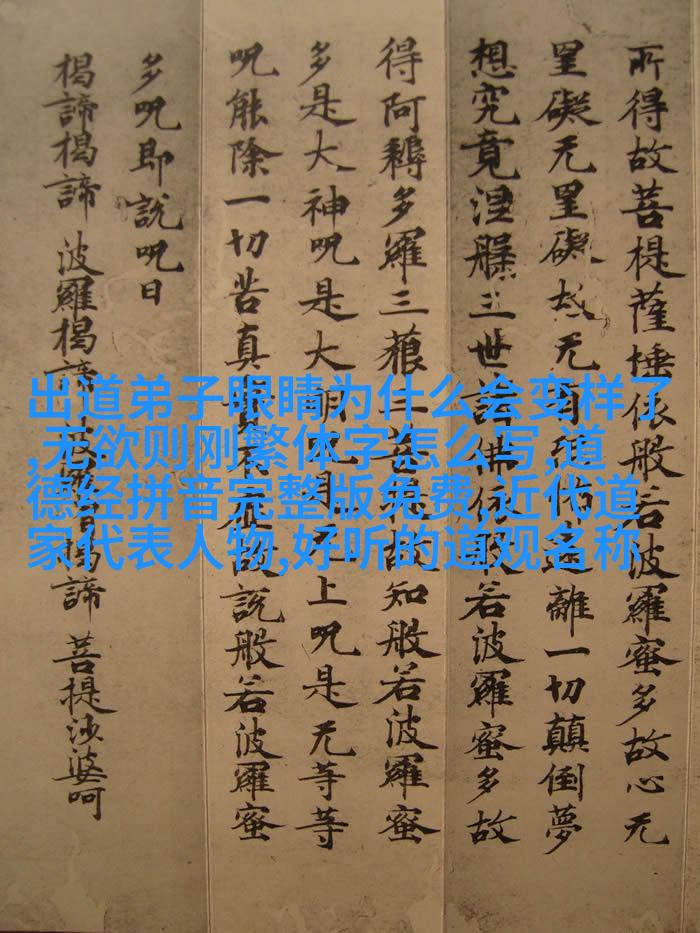 所得故菩提薩埵依般若波羅蜜多故心无
罣礙无罣礙故无有恐怖遠離一切顛倒夢
想究竟涅槃三世諸佛依般若波羅蜜多故
得阿耨多羅三藐三菩提故知般若波羅蜜
多是大神呪是大明呪是无上呪是无等等
呪能除一切苦真實不虛故說般若波羅蜜
多呪即說呪曰
揭諦揭諦 波羅揭諦 波羅僧揭諦 菩提沙婆呵
出道弟子眼睛为什么会变样了
,无欲则刚繁体字怎么写,道
德经拼音完整版免费,近代道
家代表人物,好听的道观名称